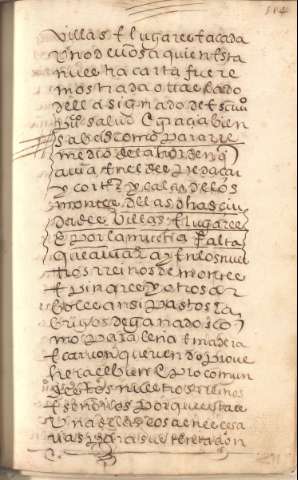 villas E lugares E a cada
Uno de vuos a quien Esta
nuestra carta fuere
mostrada o su treslado
della signado de escriuo
salud E graçia bien
sabedes como para rre
medio de la horden q
auia En el de
y cortar y talar de los
montes de las dhas çiu
dades villas E lugares
E por la mucha falta
que auia y ay En los nues
tros rreinos de montes
E pinares y otros ar
boles ansi pastos
abrigos de ganados co
mo para leña E madera
E caruon queriendo proue
her a el bien E pro comun
destos nuestros rreinos
E señorios porque esta es
Una de las cosas neçesa
rias para sustentaçion